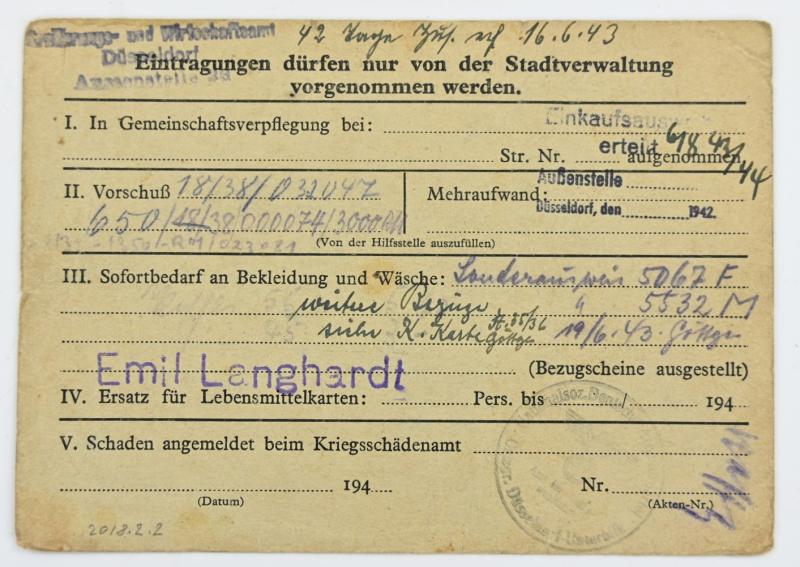 42 Tage Zus. 16.6.43
Ernährungs- und Wirtschaftsamt
Düsseldorf
Aussenstelle
Eintragungen dürfen nur von der Stadtverwaltung
vorgenommen werden.
I. In Gemeinschaftsverpflegung bei:
Einkaufsausweis
erteilt 6/8 43/44
Str. Nr. aufgenommen
Außenstelle
II. Vorschuß 18/38/032047
Mehraufwand:
Düsseldorf, den 1942.
650/18/38 000074/3000 RM
(Von der Hilfsstelle auszufüllen)
III. Sofortbedarf an Bekleidung und Wäsche: Sonderausweis 5067 F
weitere Bezüge " 5532 M
siehe K. Karte 35/36 19/6.43
(Bezugscheine ausgestellt)
Emil Langhardt
IV. Ersatz für Lebensmittelkarten: Pers. bis / 194
V. Schaden angemeldet beim Kriegsschädenamt
194 Nr.
(Datum) (Akten-Nr.)
2018.2.2